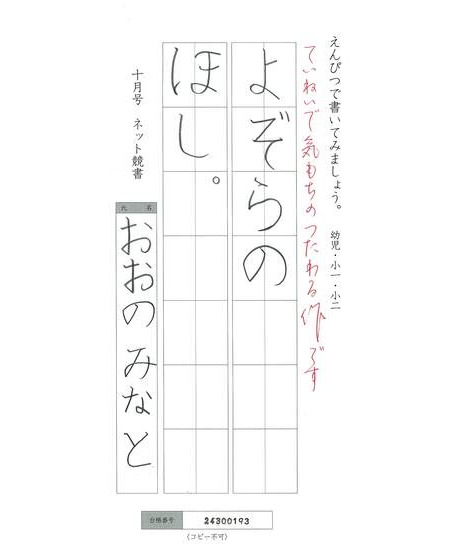 えんぴつで書いてみましょう。 幼児・小一・小二
ていねいで気もちのつたわる作です
よぞらの
ほし。
十月号 ネット競書
氏名
おおの みなと
合格番号 24300193
(コピー不可)